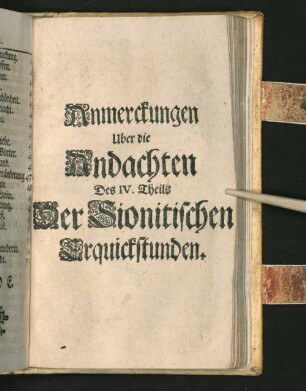 Anmerckungen
Uber die
Andachten
Des IV. Theils
Der Sionitischen
Erquickstunden.